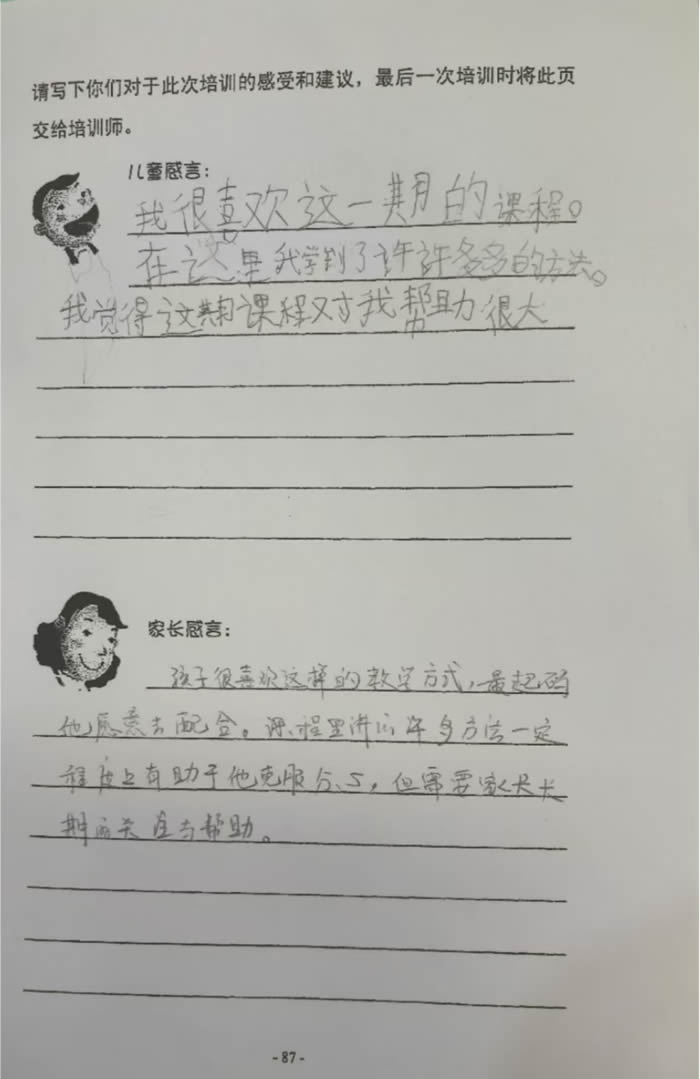 请写下你们对于此次培训的感受和建议，最后一次培训时将此页
交给培训师。
儿童感言：
我很喜欢这一期的课程。
在这里我学到了许许多多的方法。
我觉得这期课程对我帮助很大
家长感言：
孩子很喜欢这样的教学方式，最起码
他愿意去配合。课程里讲的许多方法一定
程度上有助于他克服分心，但需要家长长
期的关注与帮助。
- 87 -